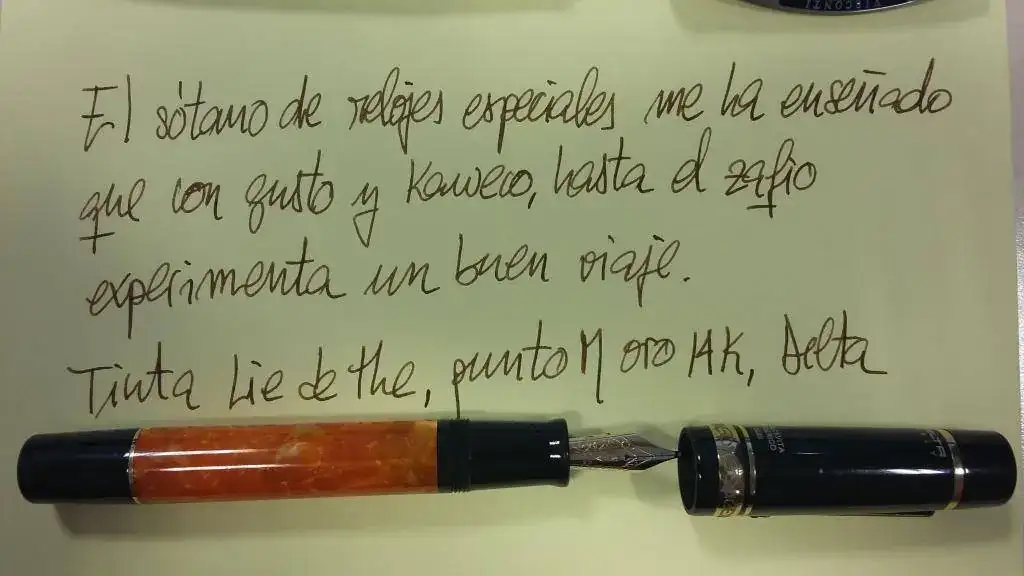 VISCONTI
El sótano de relojes especiales me ha enseñado
que con gusto y Kaweco, hasta el zafio
experimenta un buen viaje.
Tinta Lie de the, punto M oro 14K, Delta